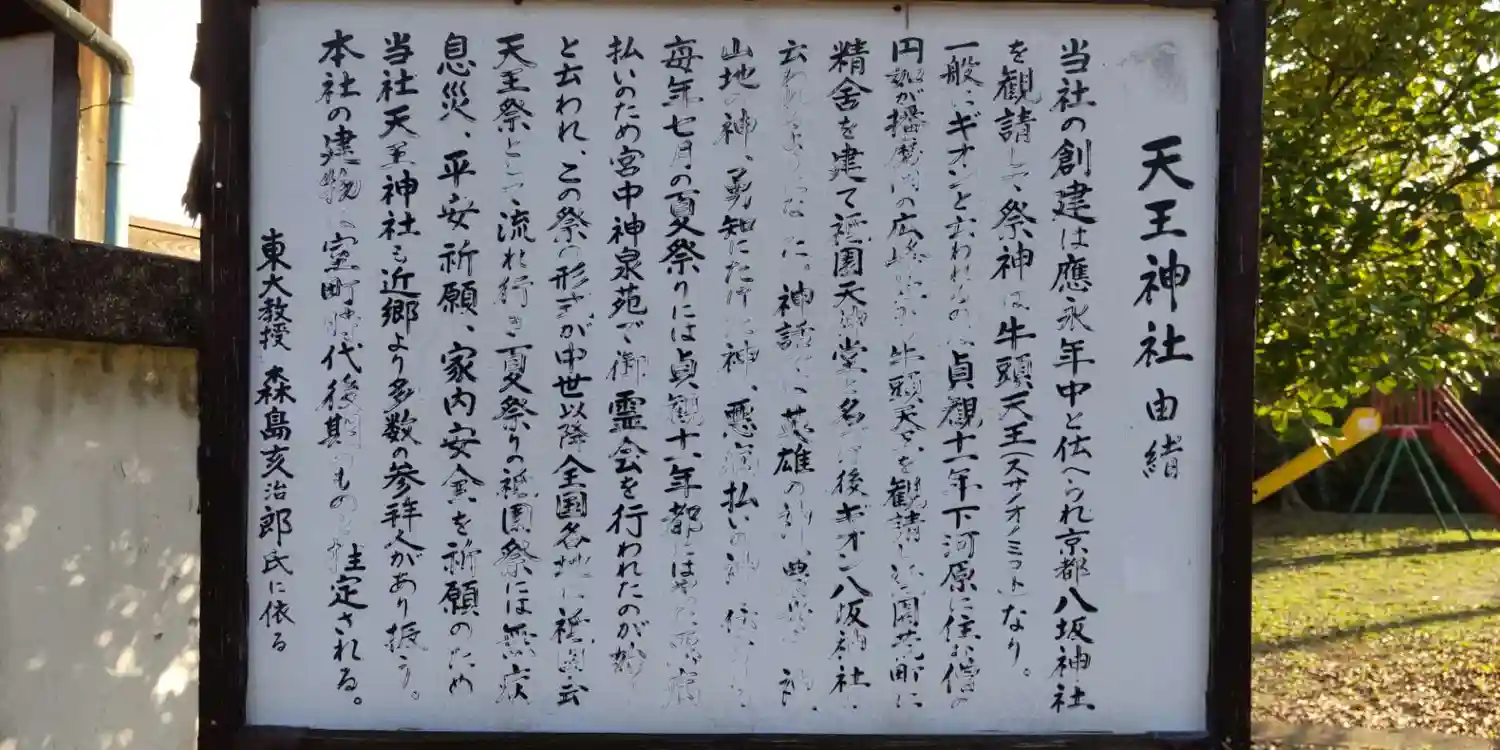 天王神社 由緒
当社の創建は應永年中と伝へられ京都八坂神社
を観請して、祭神は牛頭天王(スサノオノミコト)なり。
一般にギオンと云われるのは貞観十一年下河原に住む僧の
円如が播磨国の広峰 牛頭天 を観請し 園荒町に
精舎を建て祗園天神堂と名 後ギオン八坂神社
云われるようになった。神話 英雄の神、 神、
山地の神、勇知にたけた神、悪病払いの神
毎年七月の夏祭りには貞観十一年都にはやった悪病
払いのため宮中神泉苑で御霊会を行われたのが始
と云われ、この祭の形式が中世以降全国各地に祗園会
天王祭として流れ行き夏祭りの祗園祭には無病
息災、平安祈願、家内安全を祈願のため
当社天王神社も近郷より多数の参拝人があり振う。
本社の建物は室町時代後期のものと推定される。
東大教授 森島亥治郎氏に依る